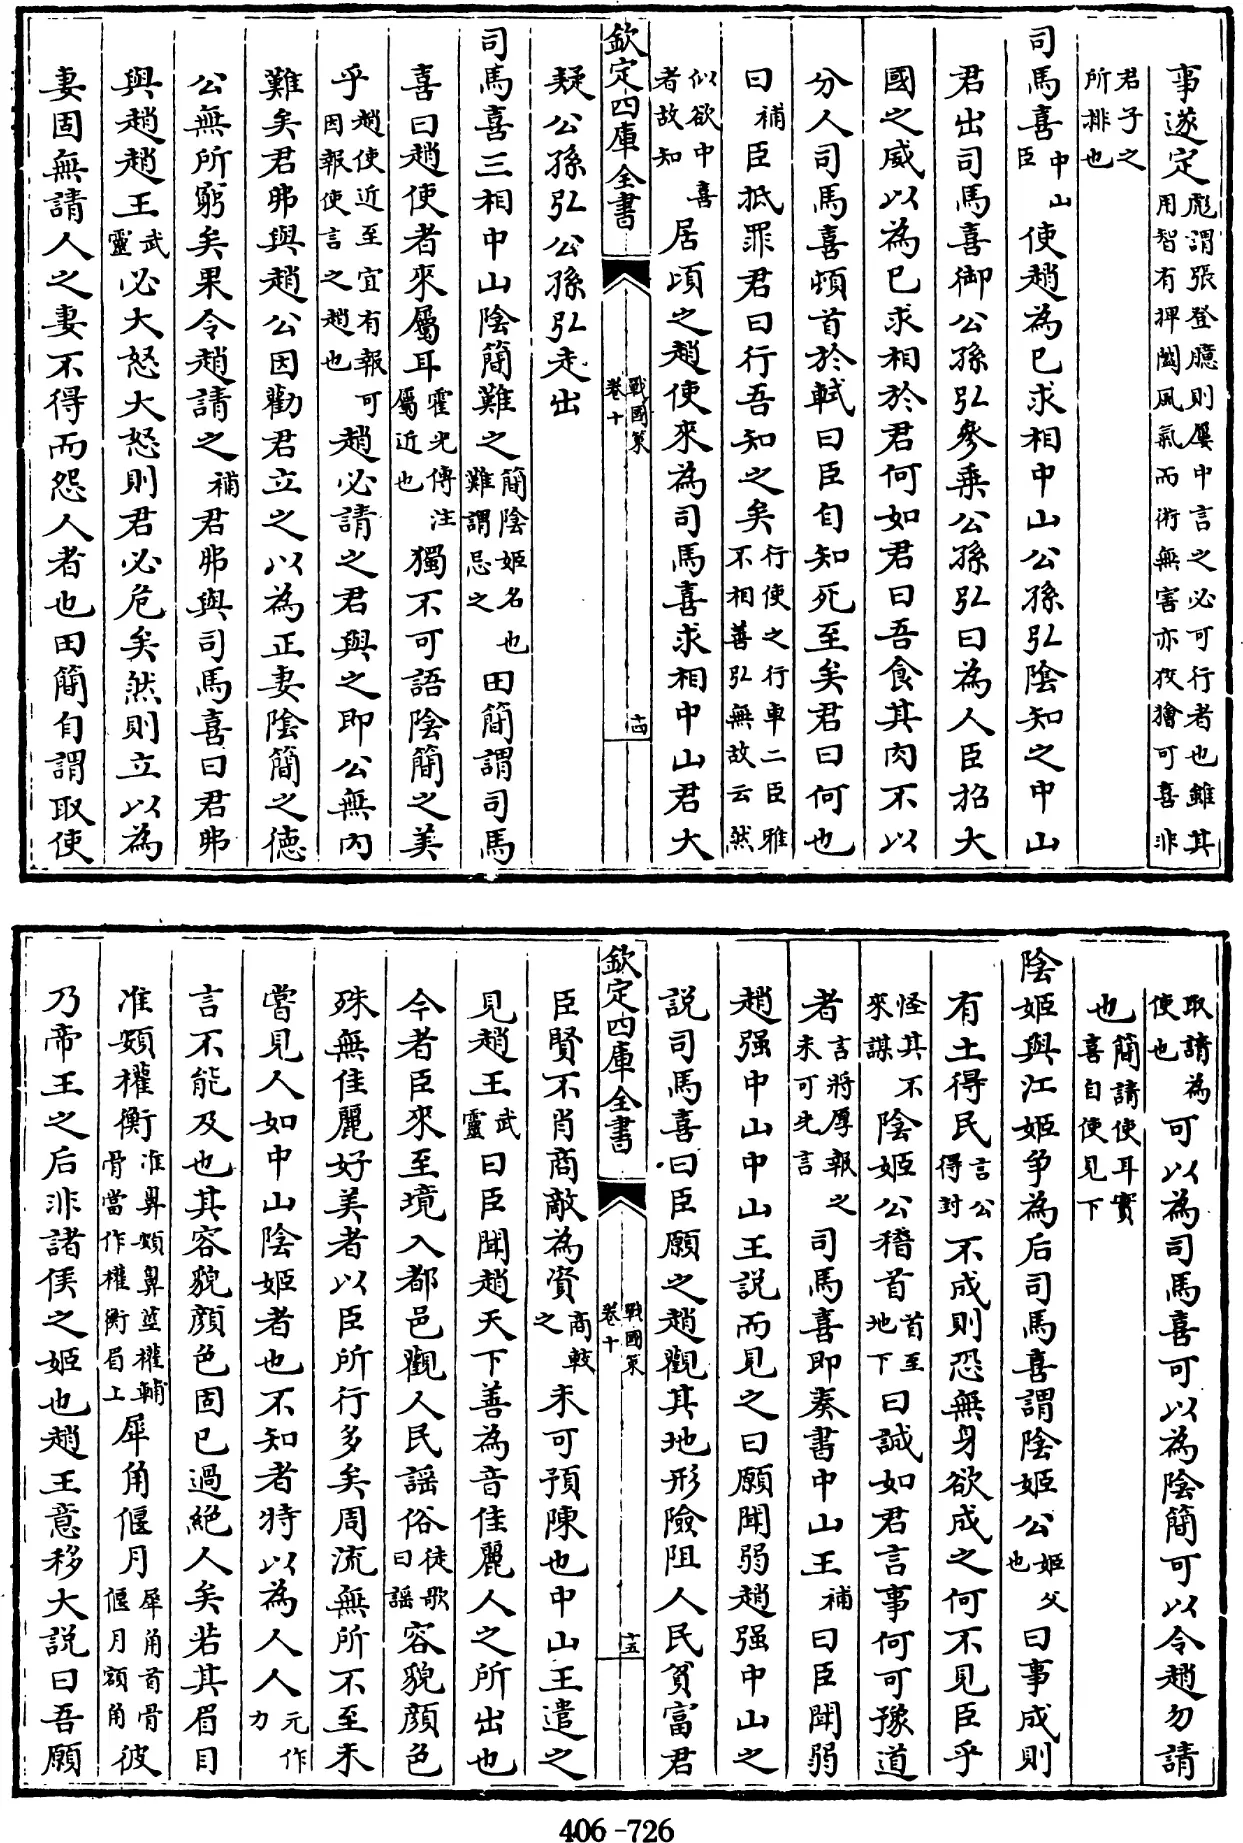 事遂定彪謂張登臆則屢中言之必可行者也雖其用智有捭闔風氣而術無害亦狡獪可喜非
君子之所排也
司馬喜中山臣使趙為已求相中山公孫弘陰知之中山
君出司馬喜御公孫弘參乗公孫弘曰為人臣招大
國之威以為已求相於君何如君曰吾食其肉不以
分人司馬喜頓首於軾曰臣自知死至矣君曰何也
曰補臣抵罪君曰行吾知之矣行使之行車二臣雅不相善弘無故云然
似欲中喜者故知居頃之趙使來為司馬喜求相中山君大
欽定四庫全書
戰國策卷十
十四
疑公孫弘公孫弘走出
司馬喜三相中山陰簡難之簡陰姬名也難謂忌之田簡謂司馬
喜曰趙使者來屬耳霍光傳注屬近也獨不可語陰簡之美
乎趙使近至宜有報因報使言之趙也可趙必請之君與之即公無内
難矣君弗與趙公因勸君立之以為正妻陰簡之德
公無所窮矣果令趙請之補君弗與司馬喜曰君弗
與趙趙王武靈必大怒大怒則君必危矣然則立以為
妻固無請人之妻不得而怨人者也田簡自謂取使
取請為使也可以為司馬喜可以為陰簡可以令趙勿請
也簡請使耳實喜自使見下
陰姬與江姬争為后司馬喜謂陰姬公姬父也曰事成則
有土得民言公得封不成則恐無身欲成之何不見臣乎
怪其不來謀陰姬公稽首首至地下曰誠如君言事何可豫道
者言將厚報之未可先言司馬喜即奏書中山王補曰臣聞弱
趙强中山中山王説而見之曰願聞弱趙强中山之
説司馬喜曰臣願之趙觀其地形險阻人民貧富君
欽定四庫全書
戰國策卷十
十五
臣賢不肖商敵為資商較之未可預陳也中山王遣之
見趙王武靈曰臣聞趙天下善為音佳麗人之所出也
今者臣來至境入都邑觀人民謡俗徒歌曰謡容貌顔色
殊無佳麗好美者以臣所行多矣周流無所不至未
嘗見人如中山陰姬者也不知者特以為人人元作力
言不能及也其容貌顔色固已過絶人矣若其眉目
准頞權衡准鼻頞鼻莖權輔骨當作權衡眉上犀角偃月犀角首骨偃月額角彼
乃帝王之后非諸侯之姬也趙王意移大説曰吾願
406-726